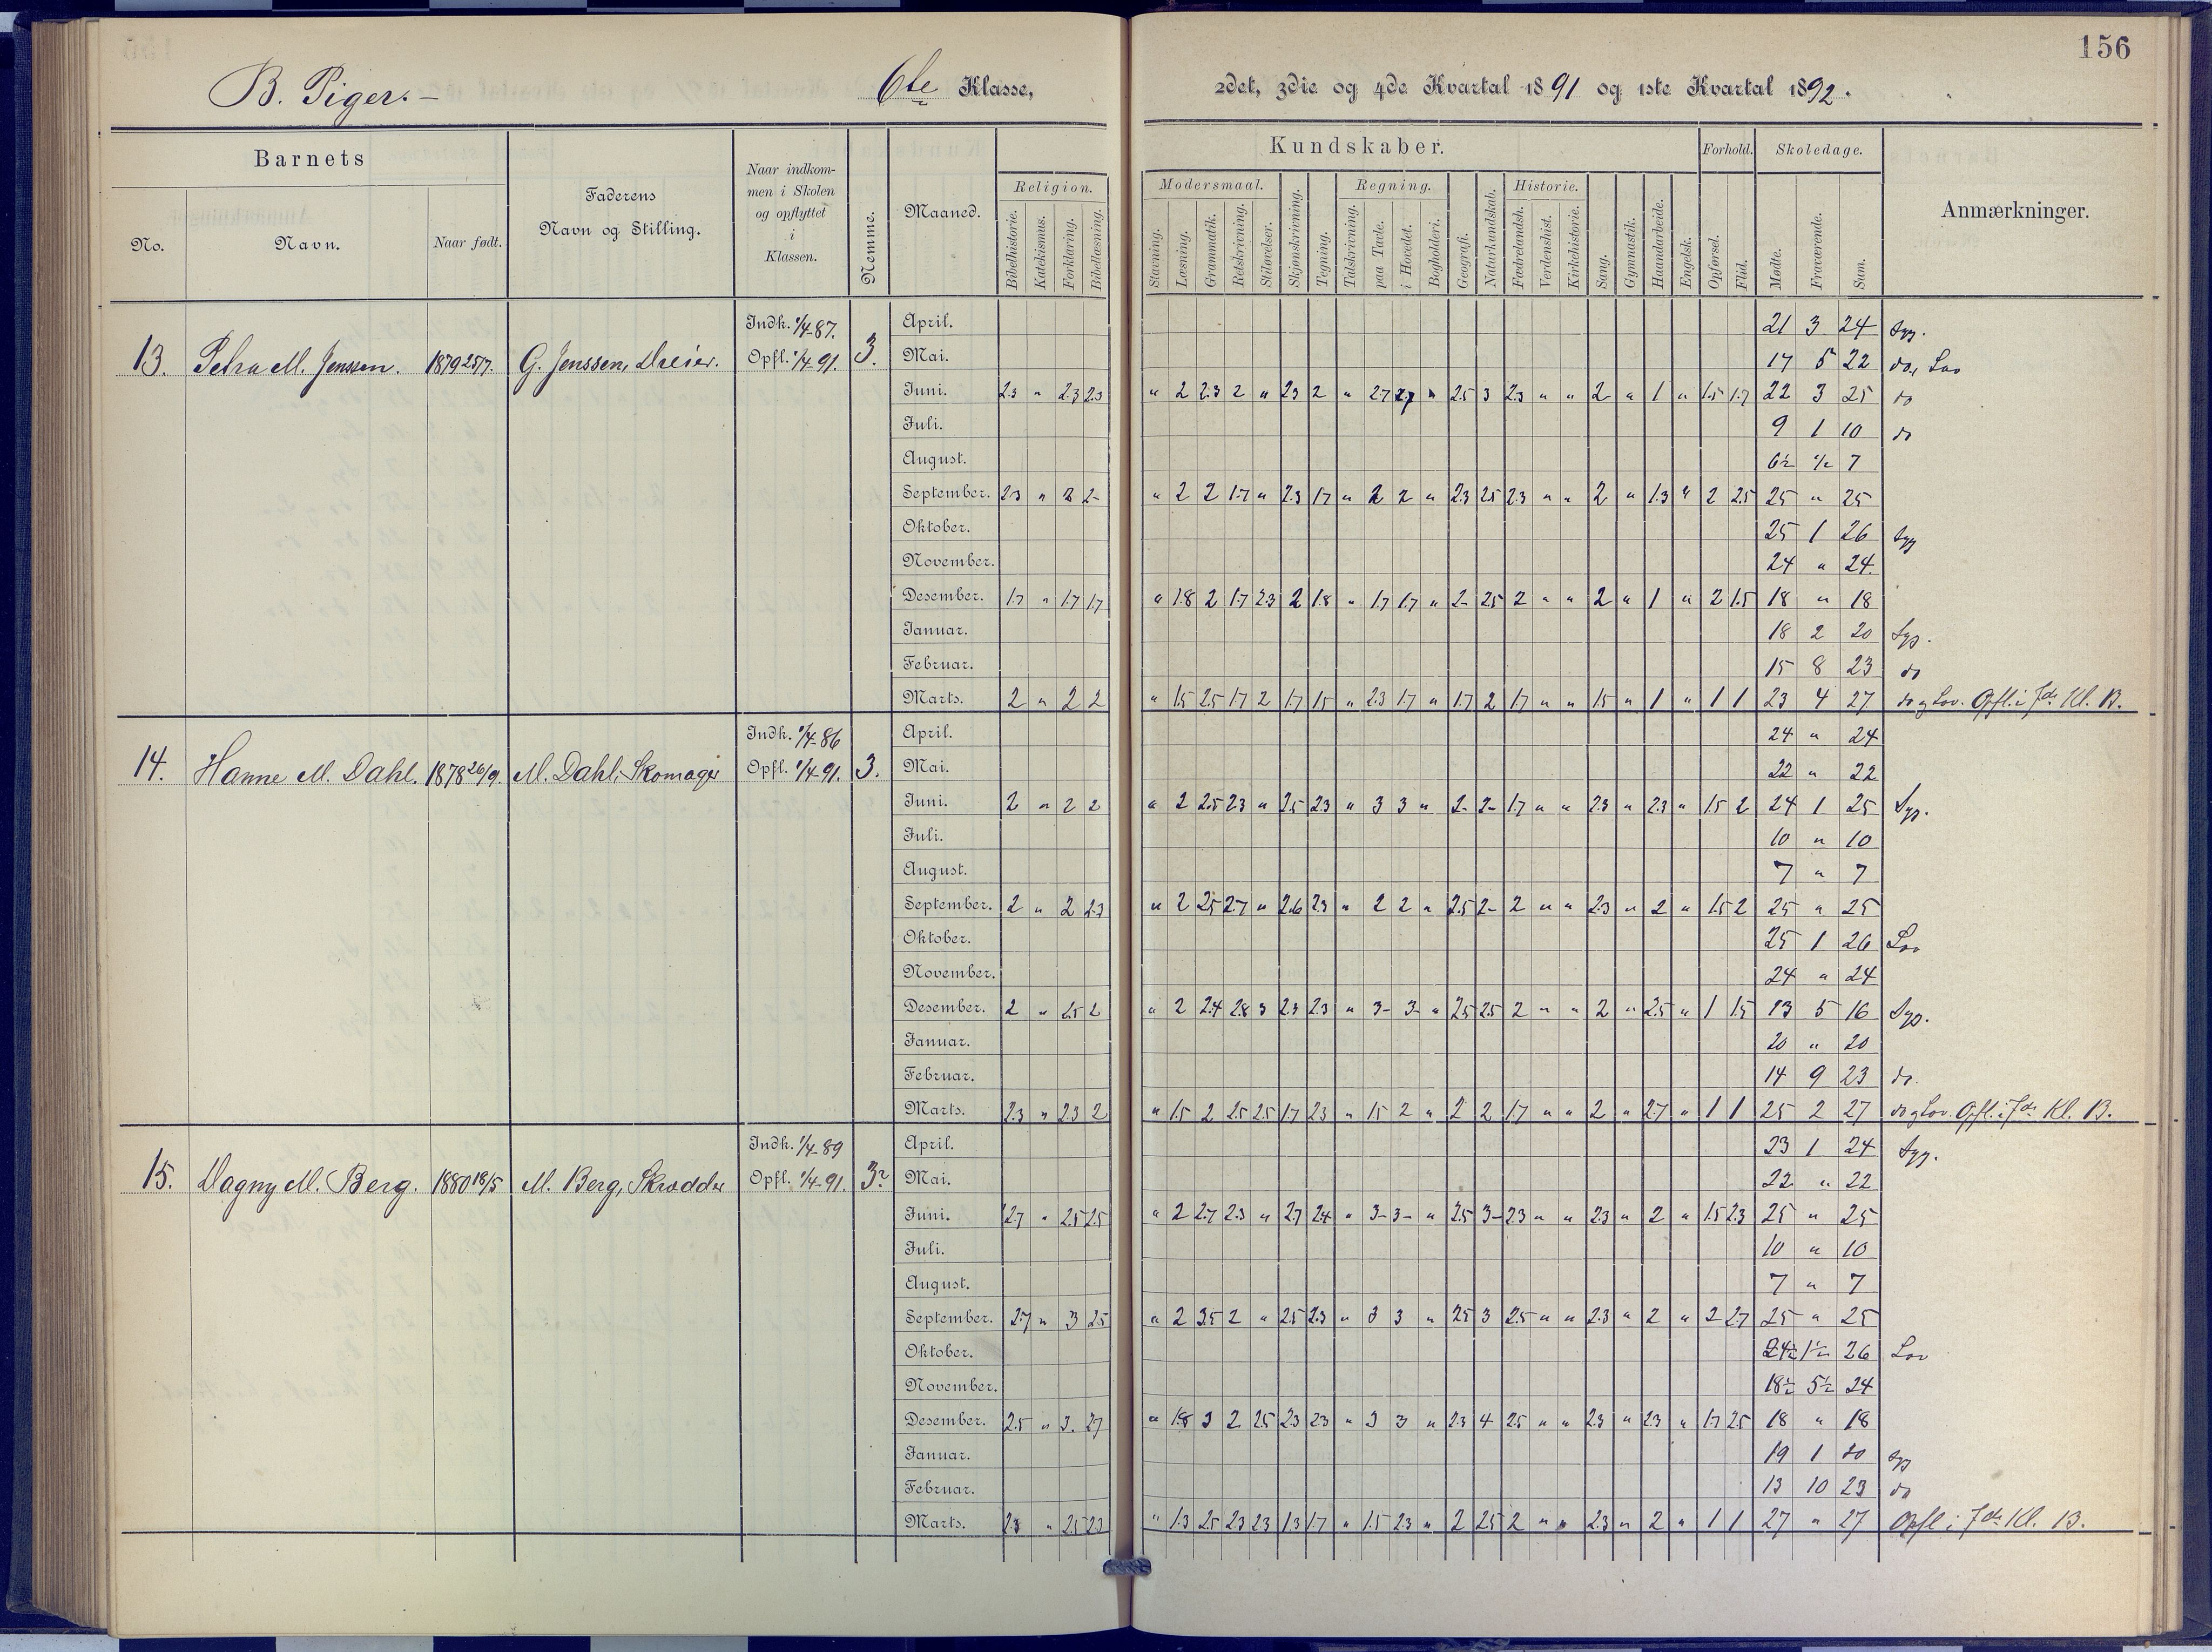 156
B. Piger. –
6te Klasse,
2det, 3die og 4de Kvartal 1891 og 1ste Kvartal 1892.
Barnets
No.
Navn.
Naar født.
Faderens
Navn og Stilling.
Naar indkom-
men i Skolen
og opflyttet
i
Klassen.
Nemme.
Maaned.
Kundskaber.
Religion.
Bibelhistorie.
Katekismus.
Forklaring.
Bibellæsning.
Modersmaal.
Stavning.
Læsning.
Grammatik.
Retskrivning.
Stiløvelser.
Skjønskrivning.
Tegning.
Regning.
Talskrivning.
paa Tavle.
i Hovedet.
Bogholderi.
Geografi.
Naturkundskab.
Historie.
Fædrelandsh.
Verdenshist.
Kirkehistorie.
Sang.
Gymnastik.
Haandarbeide.
Engelsk.
Forhold.
Opførsel.
Flid.
Skoledage.
Mødte.
Fraværende.
Sum.
Anmærkninger.
13. Petra M. Jenssen. 1879 25/7. G. Jenssen, Dreier. Indk. 1/4-87. Opfl. 1/4-91. 3.
April. 21 3 24 Syg.
Mai. 17 5 22 do., Lov
Juni. 2.3 " 2.3 2.3 " 2 2.3 2 " 2.3 2 " 2.7 2.7 " 2.5 3 2.3 " " 2 " 1 " 1.5 1.7 22 3 25 do
Juli. 9 1 10 do
August. 6½ ½ 7
September. 2.3 " 2 2- " 2 2 1.7 " 2.3 1.7 " 2 2 " 2.3 2.5 2.3 " " 2 " 1.3 " 2 2.5 25 " 25
Oktober. 25 1 26 Syg
November. 24 " 24.
Desember. 1.7 " 1.7 1.7 " 1.8 2 1.7 2.3 2 1.8 " 1.7 1.7 " 2- 2.5 2 " " 2 " 1 " 2 1.5 18 " 18
Januar. 18 2 20 Syg.
Februar. 15 8 23 do
Marts. 2 " 2 2 " 1.5 2.5 1.7 2 1.7 1.5 " 2.3 1.7 " 1.7 2 1.7 " " 1.5 " 1 " 1 1 23 4 27 do og Lov. Opfl. i 7de Kl. B.
14. Hanne M. Dahl. 1878 26/9. M. Dahl, Skomager Indk. 1/4-86 Opfl. 1/4-91. 3.
April. 24 " 24
Mai. 22 " 22
Juni. 2 " 2 2 " 2 2.5 2.3 " 2.5 2.3 " 3 3 " 2- 2- 1.7 " " 2.3 " 2.3 " 1.5 2 24 1 25 Syg.
Juli. 10 " 10
August. 7 " 7
September. 2 " 2 2.3 " 2 2.5 2.7 " 2.6 2.3 " 2 2 " 2.5 2- 2 " " 2.3 " 2 " 1.5 2 25 " 25
Oktober. 25 1 26 Lov
November. 24 " 24
Desember. 2 " 2.5 2 " 2 2.4 2.8 3 2.3 2.3 " 3- 3- " 2.5 2.5 2 " " 2 " 2.5 " 1 1.5 13 5 16 Syg.
Januar. 20 " 20
Februar. 14 9 23 do.
Marts. 2.3 " 2.3 2 " 1.5 2 2.5 2.5 1.7 2.3 " 1.5 2 " 2 2 1.7 " " 2 " 2.7 " 1 1 25 2 27 do og Lov. Opfl. i 7de Kl. B.
15. Dagny M. Berg. 1880 18/5 M. Berg, Skrædder Indk. 1/4-89 Opfl. 1/4-91. 3?
April. 23 1 24 Syg.
Mai. 22 " 22
Juni. 2.7 " 2.5 2.5 " 2 2.7 2.3 " 2.7 2.4 " 3- 3- " 2.5 3- 2.3 " " 2.3 " 2 " 1.5 2.3 25 " 25
Juli. 10 " 10
August. 7 " 7
September. 2.7 " 3 2.5 " 2 3.5 2 " 2.5 2.3 " 3 3 " 2.5 3 2.5 " " 2.3 " 2 " 2 2.7 25 " 25
Oktober. 24½ 1½ 26 Lov
November. 18½ 5½ 24
Desember. 2.5 " 3. 2.7 " 1.8 3 2 2.5 2.3 2.3 " 3 3 " 2.3 4 2.5 " " 2.3 " 2.3 " 1.7 2.5 18 " 18
Januar. 19 1 20 Syg
Februar. 13 10 23 do
Marts. 2.3 " 2.5 2.3 " 1.3 2.5 2.3 2.3 1.3 1.7 " 1.5 2.3 " 2 2.5 2 " " 2.3 " 2 " 1 1 27 " 27 Opfl i 7de Kl. B.